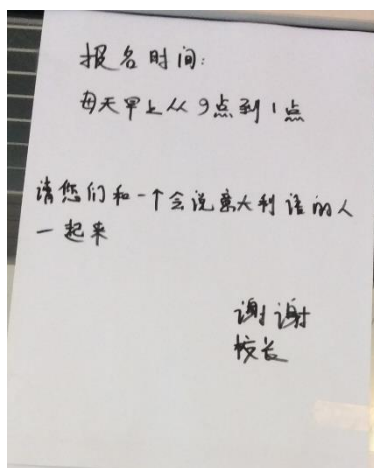 报名时间:
每天早上从9点到1点
请您们和一个会说意大利语的人
一起来
谢谢
校长